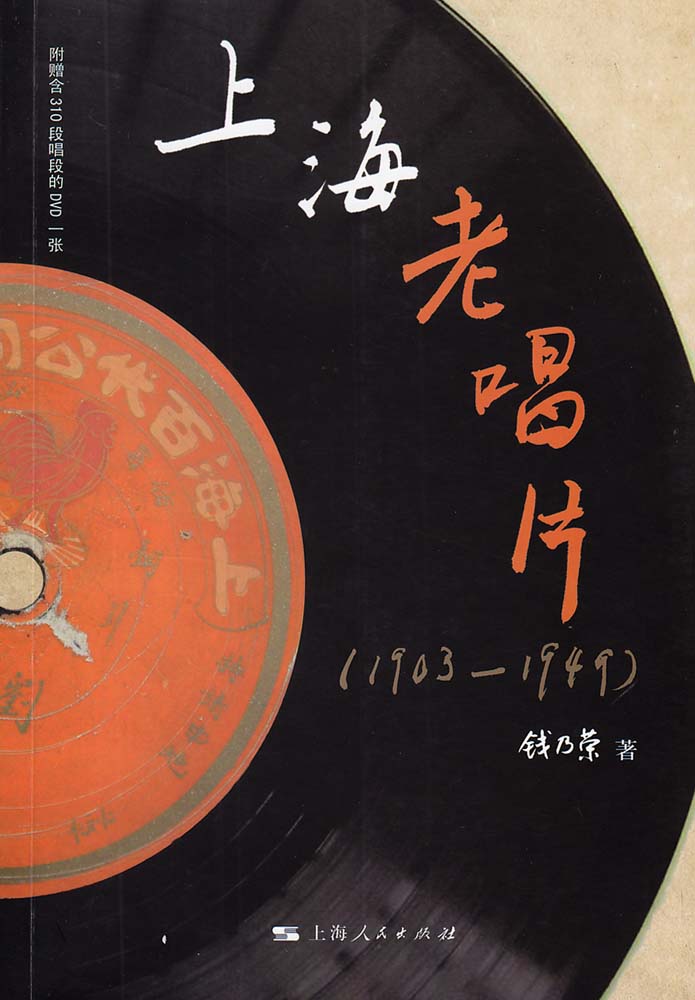 附赠含310段唱段的DVD一张
上海
老唱片
(1903—1949)
钱乃荣 著
上海百代公司
上海人民出版社